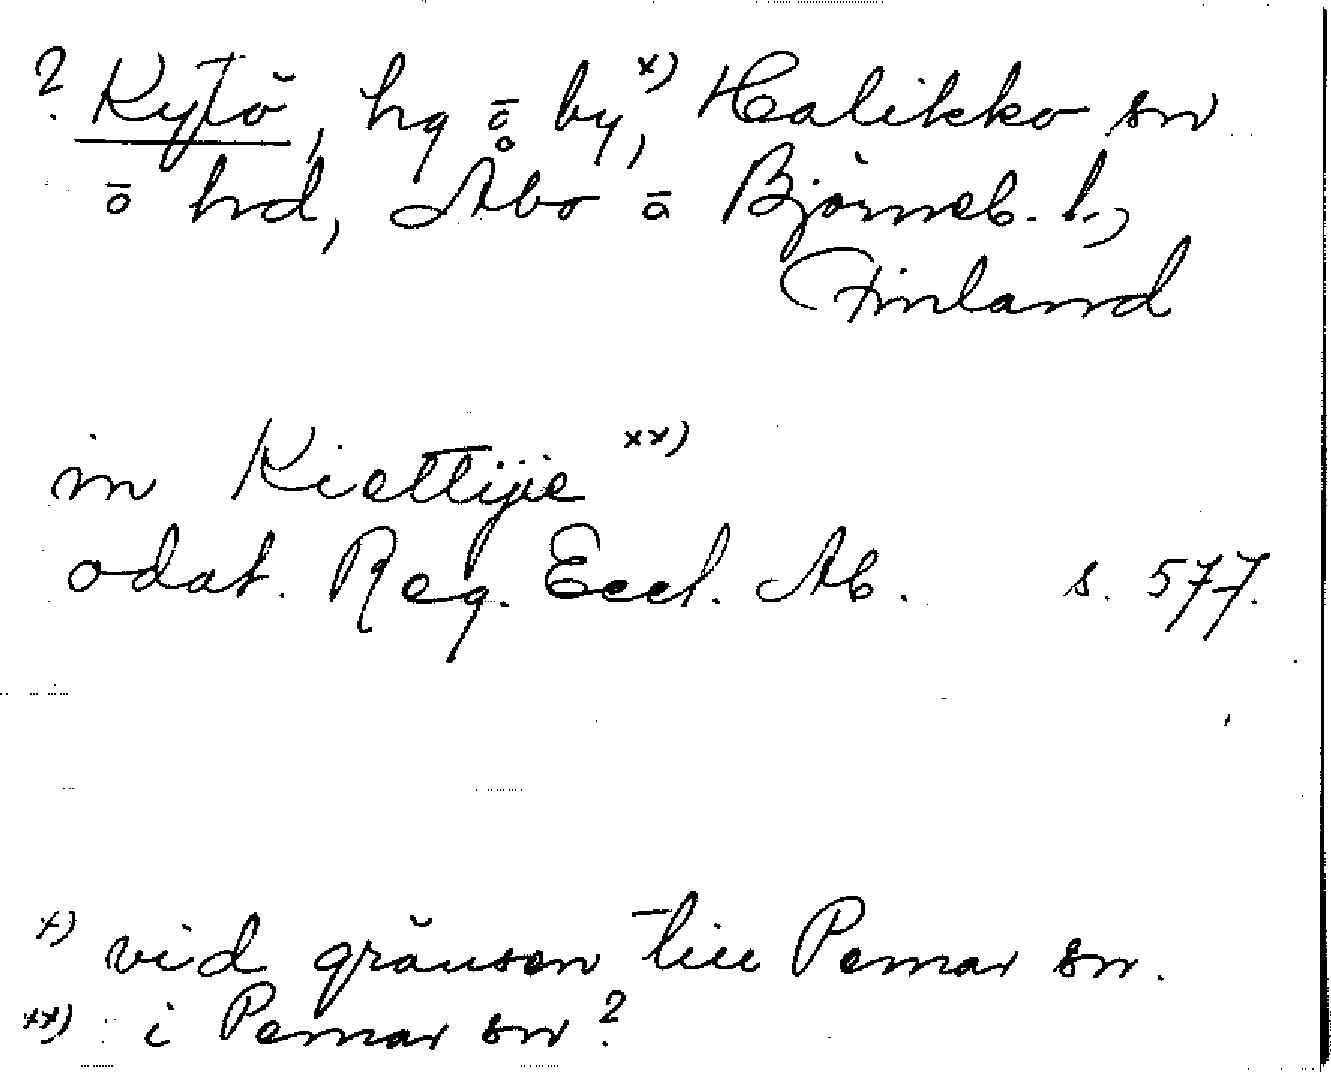 ? Kytö, hg o by, x) Halikko sn
o hd, Åbo o Björneb. l.,
Finland
in Kiettijie xx)
odat. Reg. Eccl. Ab. s. 577.
x) vid gränsen till Pemar sn.
xx) i Pemar sn?